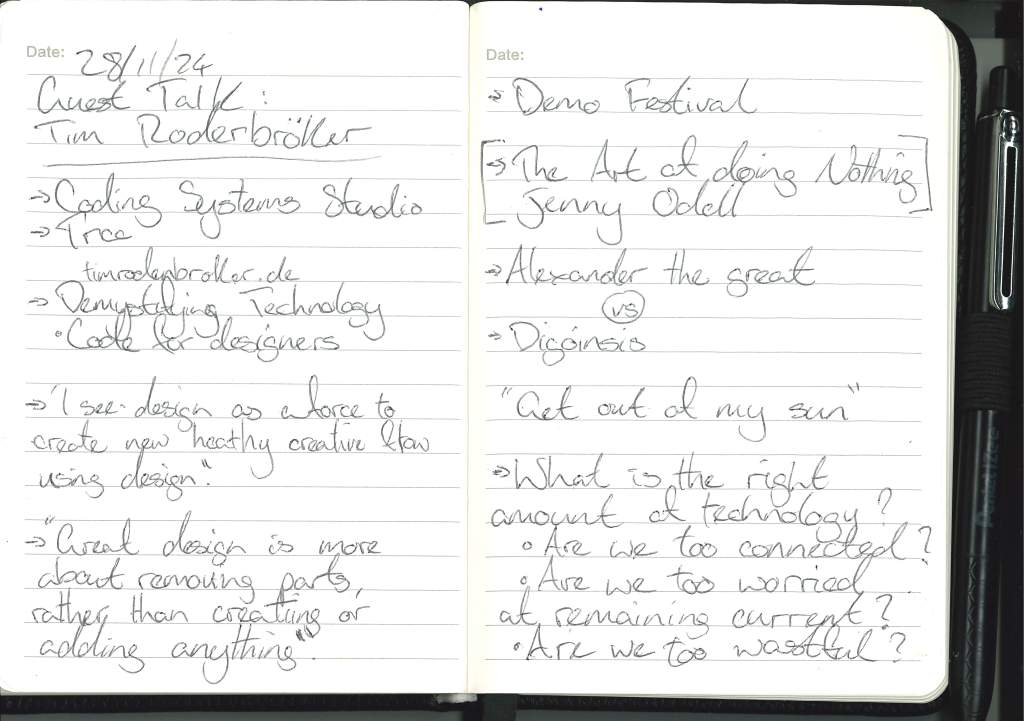 Date: 28/11/24
Guest Talk:
Tim Roderbröker
→ Coding Systems Studio
→ Tree
timrodenbroker.de
→ Demystifying Technology
• Code for designers
→ "I see design as a force to
create new heathy creative flow
using design".
→ "Great design is more
about removing parts,
rather than creating or
adding anything".
Date:
→ Demo Festival
→ The Art of doing Nothing
Jenny Odell
→ Alexander the great
vs
→ Digoinsis
"Get out of my sun"
→ What is the right
amount of technology?
• Are we too connected?
• Are we too worried
at remaining current?
• Are we too wastful?